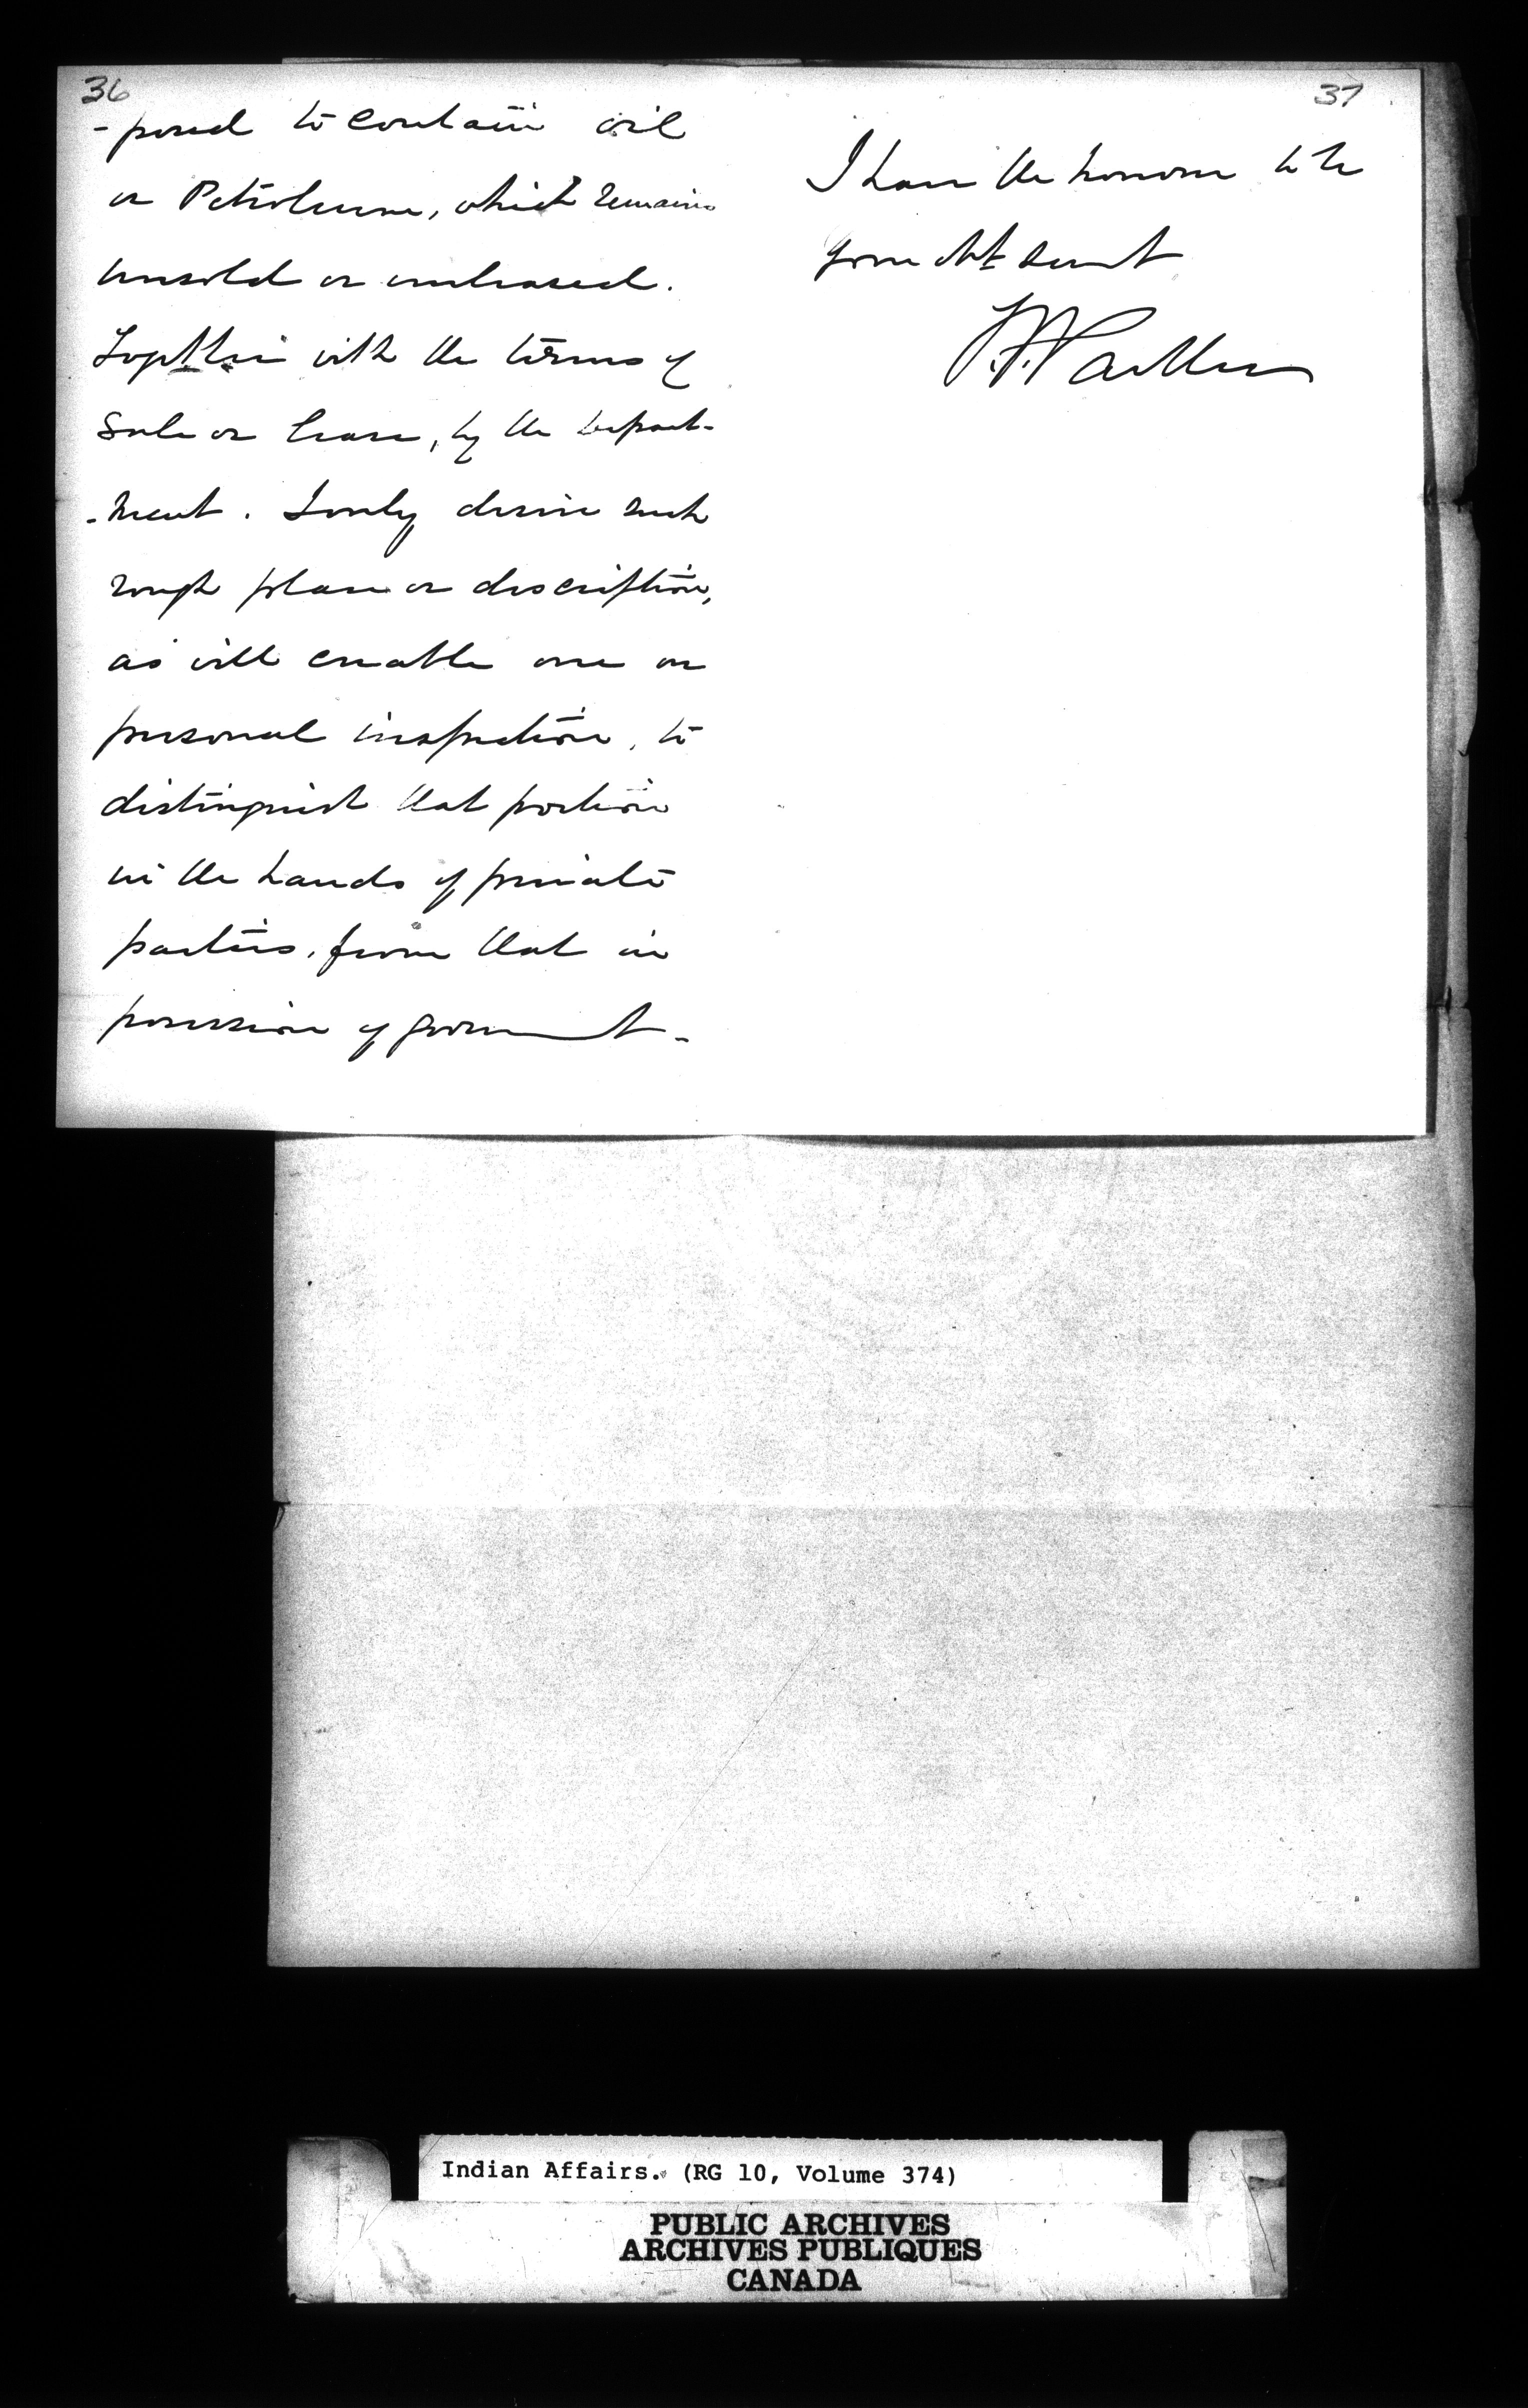 36
-posed to contain oil
or Petroleum, which remains
unsold or unleased.
Together with the terms of
Sale or lease, by the Depart-
-ment. I only desire such
rough plan or description,
as will enable one on
personal inspection, to
distinguish that portion
in the hands of private
parties, from that in
possession of government -
37
I have the honour to be
your obt servt
Indian Affairs. (RG 10, Volume 374)
PUBLIC ARCHIVES
ARCHIVES PUBLIQUES
CANADA